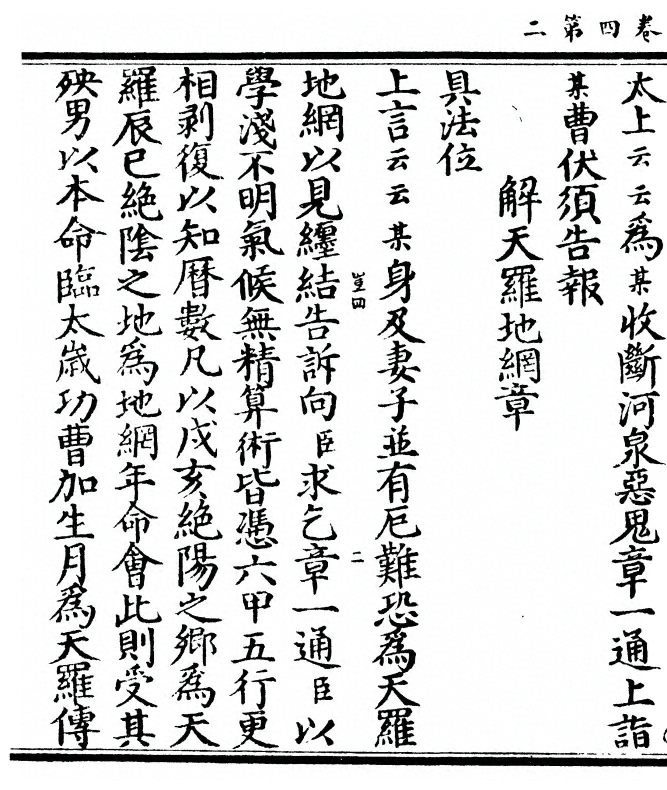 卷四第二
太上云云為某收斷河泉惡鬼章一通上詣
某曹伏須告報
解天羅地網章
具法位
上言云云某身及妻子並有厄難恐為天羅
地網以見纏結告訴向臣求乞章一通臣以
學淺不明氣候無精算術皆憑六甲五行更
相剥復以知曆數凡以戌亥絕陽之鄉為天
羅辰巳絕陰之地為地網年命會此則受其
殃男以本命臨太歲功曹加生月為天羅傳